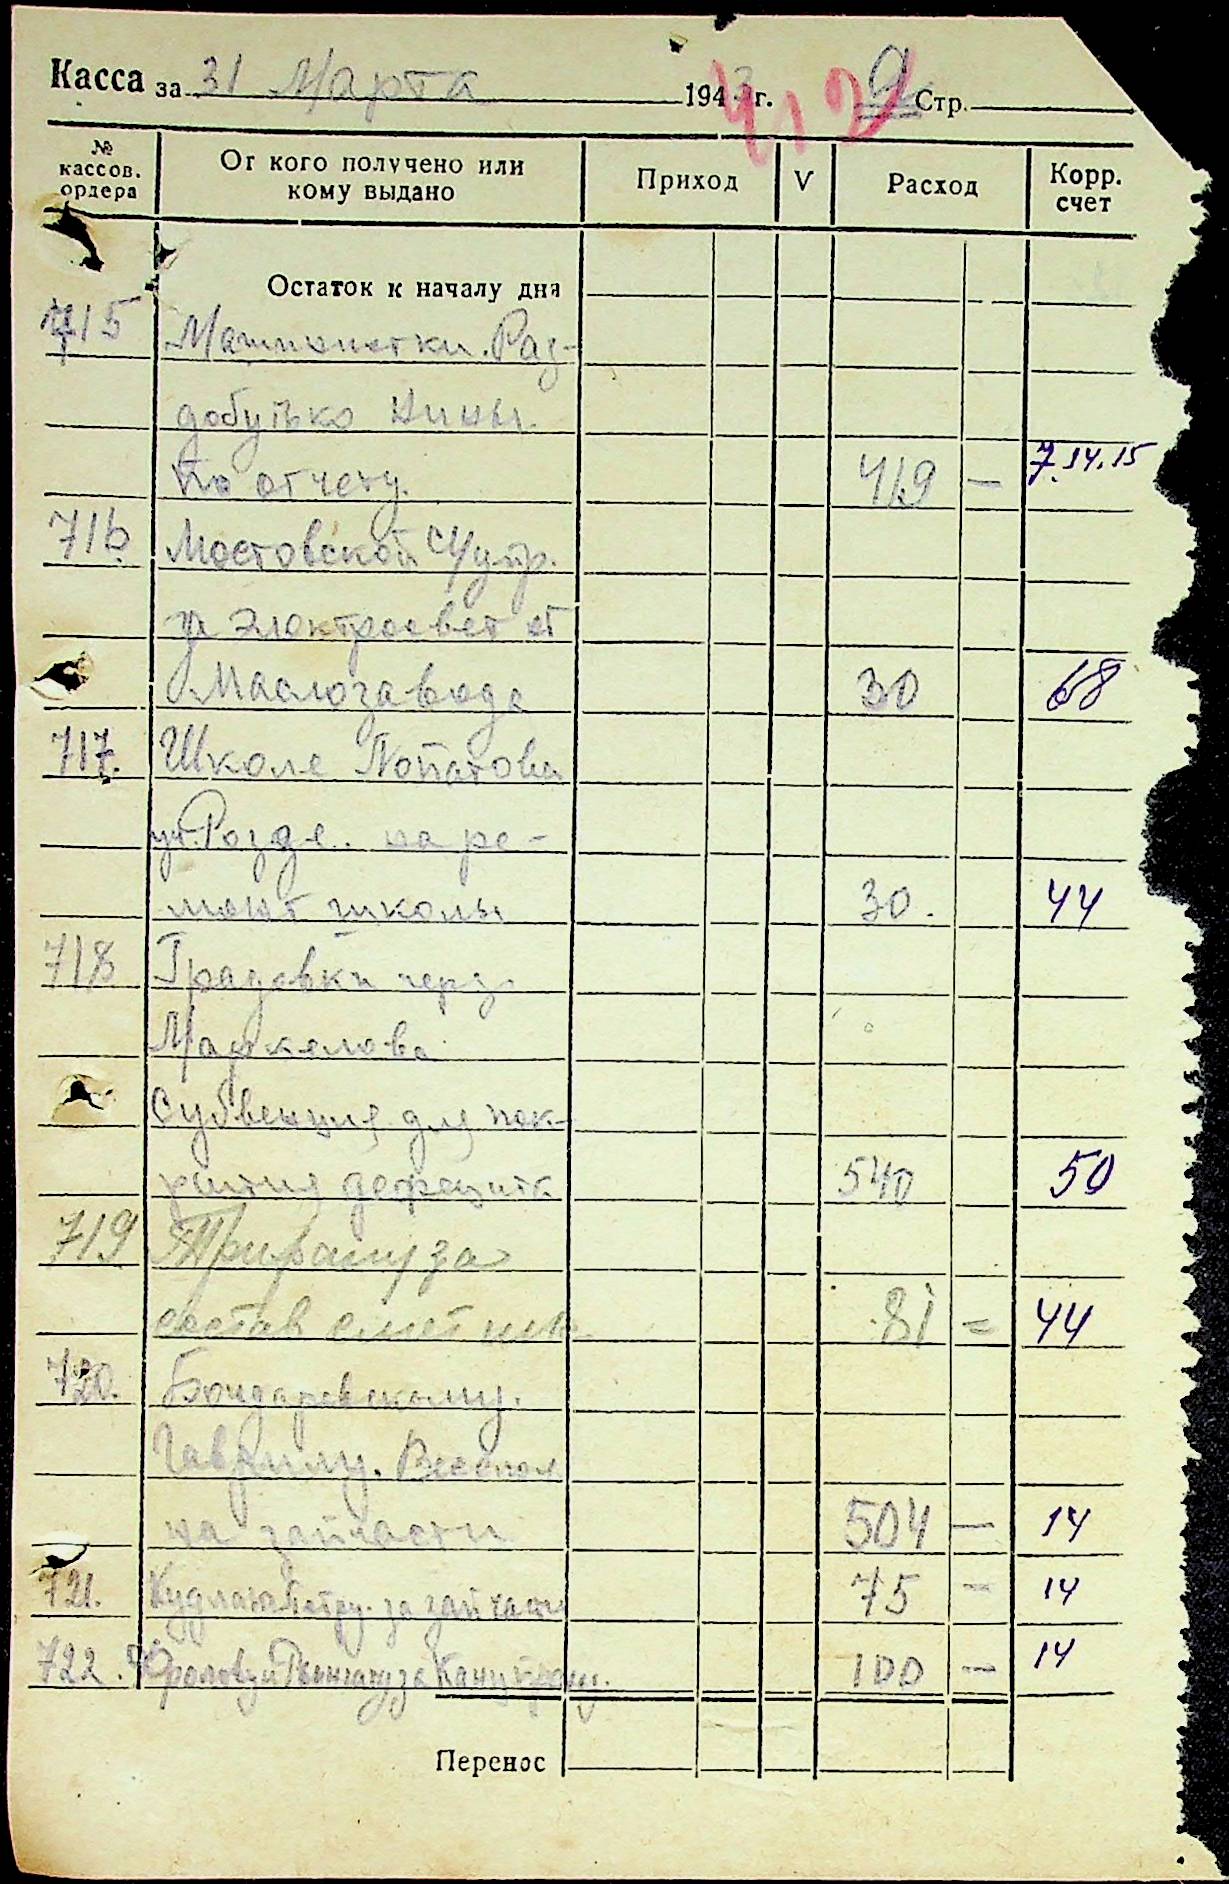 Касса за 31 Марта 1943 г. 9 Стр.
412
№ кассов. ордера От кого получено или кому выдано Приход V Расход Корр. счет
Остаток к началу дня
715 Машинистки. Раз-
добутько Нины.
По отчету. 419 — 7.14.15
716 Мостовской С/упр.
за электросвет от
Маслозавода 30 68
717. Школе
на ре-
монт школы 30. 44
718 Градовки через
Маркелова
субвенция для пок-
рытия дефицита 540 50
719 за
состав смет 81 = 44
720. Бондаревскому.
Гаврилу.
на запчасти 504 — 14
721. Петру. за запчасти 75 — 14
722. за 100 — 14
Перенос